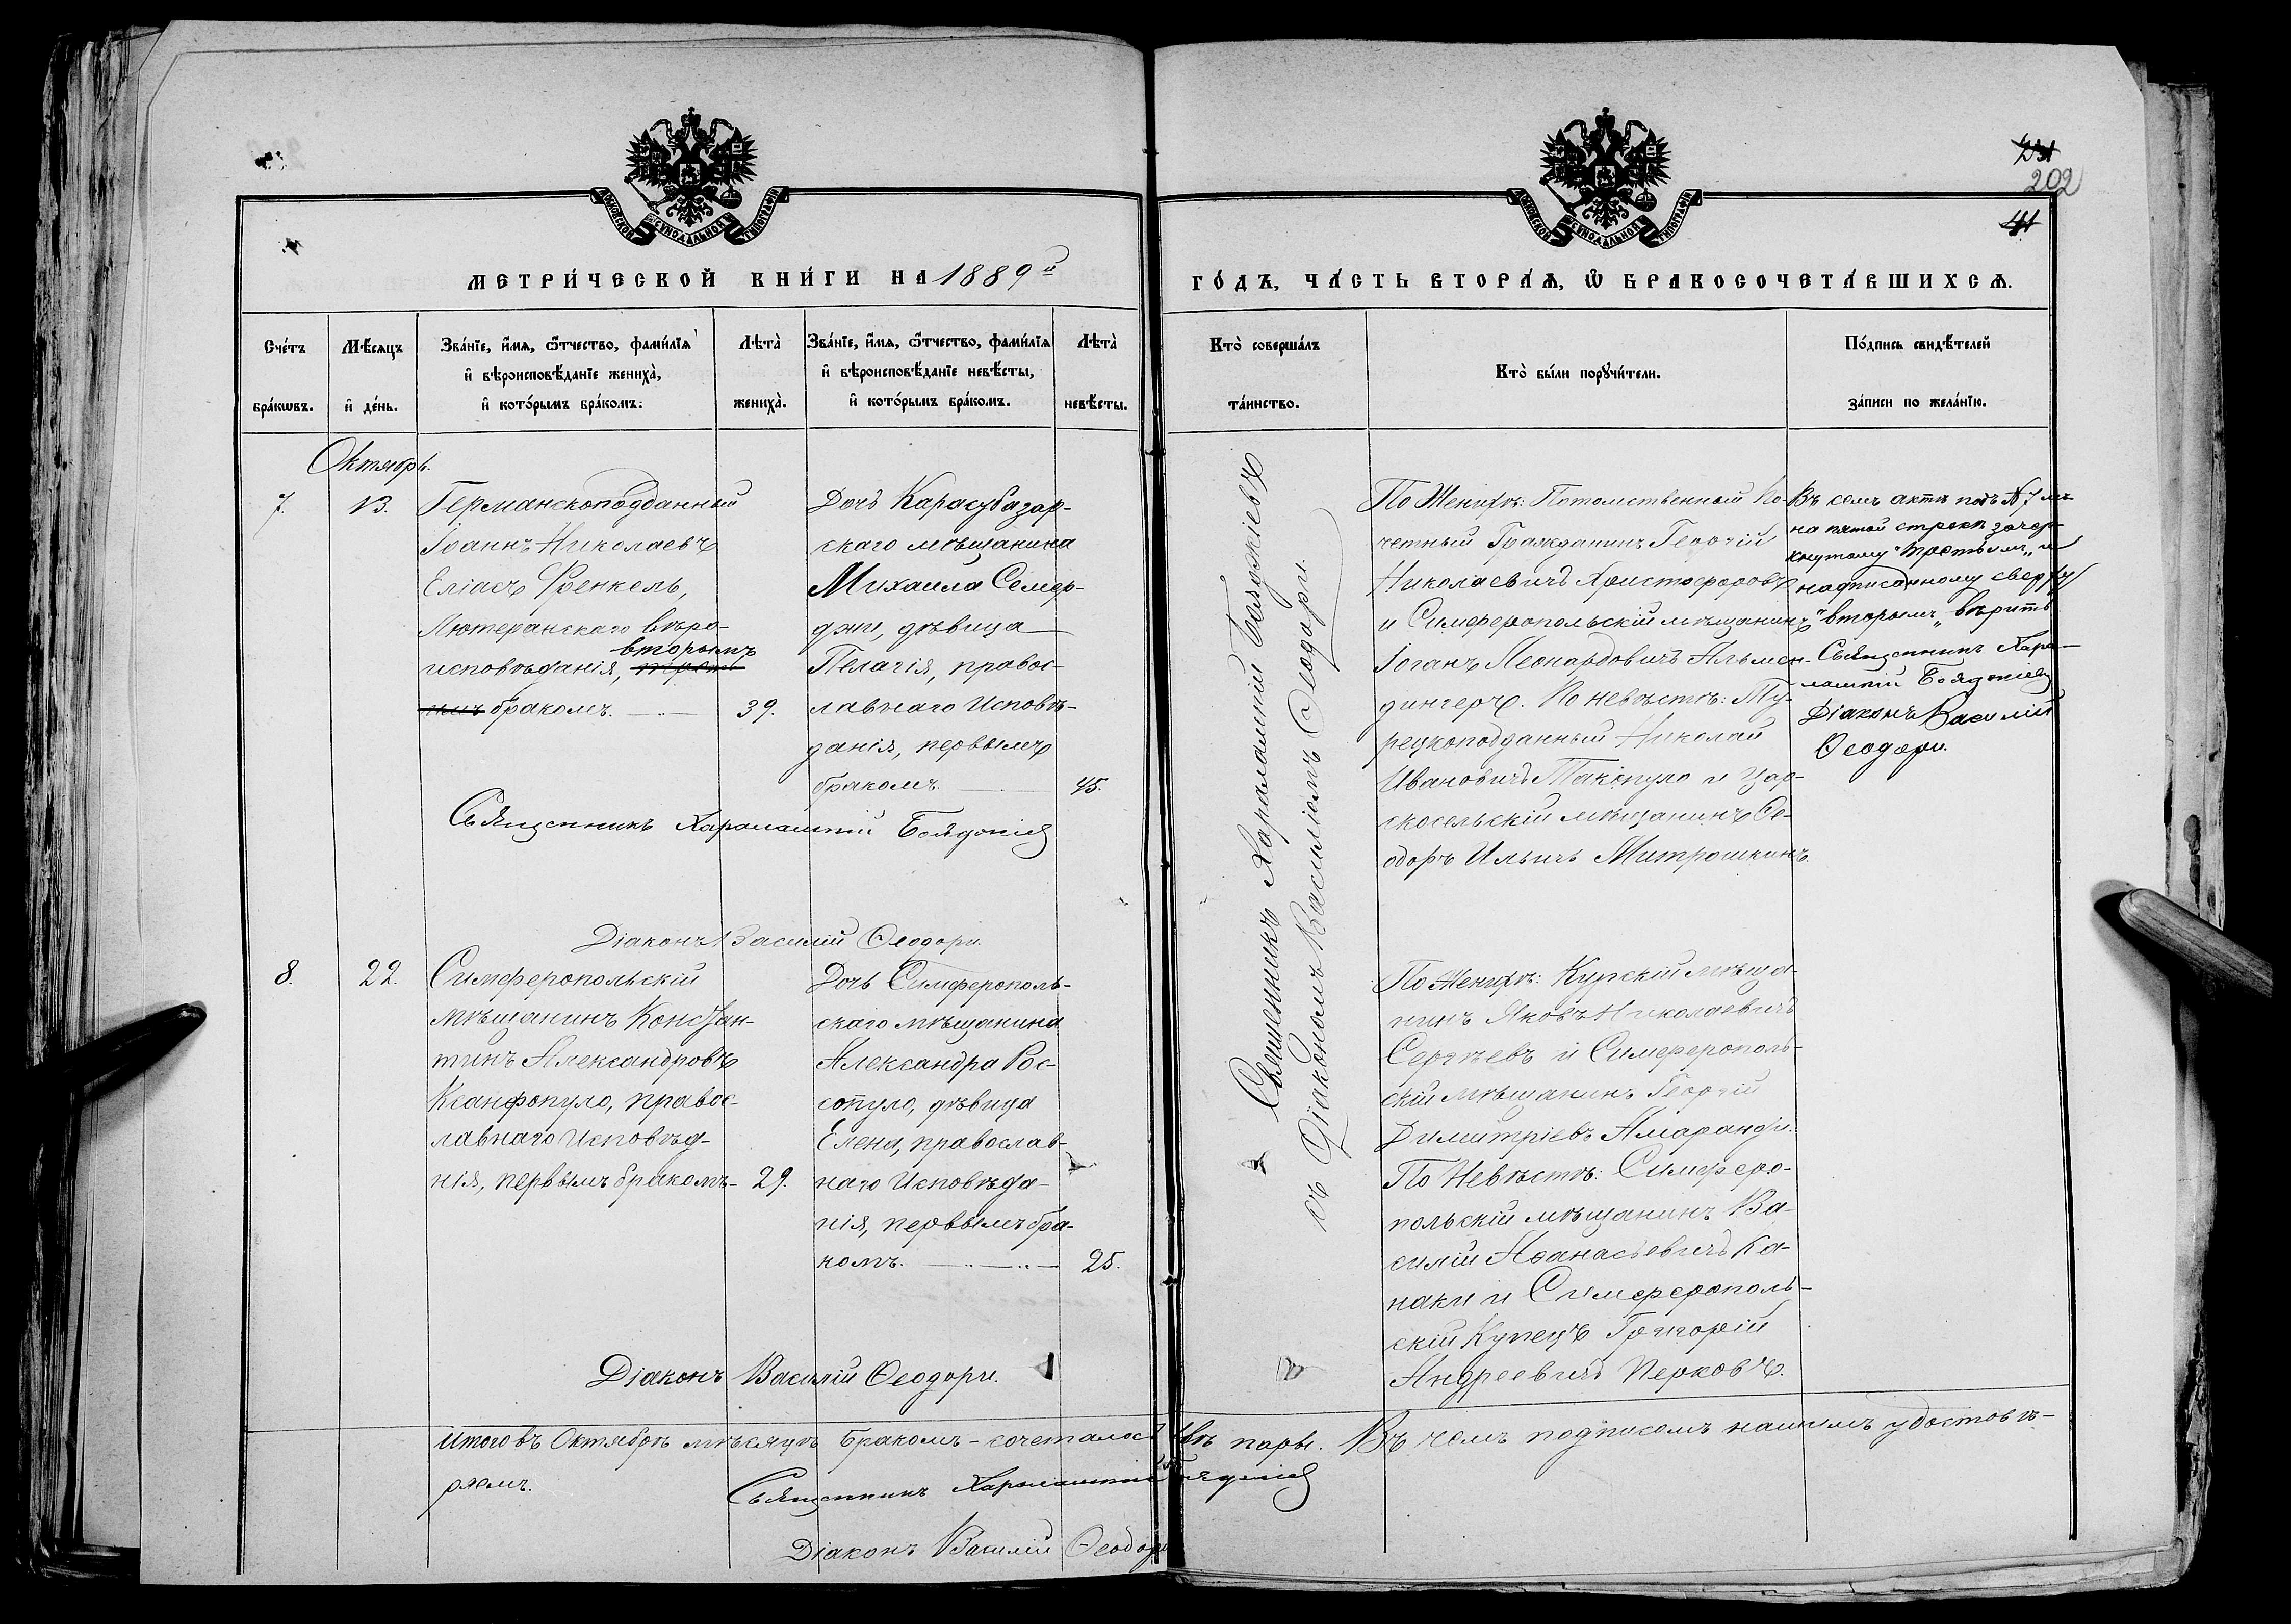 231
202
41
МОСКОВСКОЙ СѴНОДАЛЬНОЙ ТИПОГРАФІИ
МОСКОВСКОЙ СѴНОДАЛЬНОЙ ТИПОГРАФІИ
МЕТРИ́ЧЕСКОЙ КНИ́ГИ НА 1889й
ГО́ДЪ, ЧА́СТЬ ВТОРА́Ѧ, Ѽ БРАКОСОЧЕТА́ВШИХСѦ.
Сче́тъ бра́кѡвъ.
Мѣ́сѧцъ и҆ де́нь.
Зва́нїе, и҆́мѧ, ѻ҆́тчество, фами́лїѧ
и҆ вѣроисповѣ́данїе жениха̀,
и҆ кото́рымъ бра́комъ:
Лѣта̀ жениха̀.
Зва́нїе, и҆́мѧ, ѻ҆́тчество, фами́лїѧ
и҆ вѣроисповѣ́данїе невѣ́сты,
и҆ кото́рымъ бра́комъ.
Лѣта̀ невѣ́сты.
Кто̀ соверша́лъ та́инство.
Кто̀ бы́ли порꙋчи́тели.
По́дпись свидѣ́телей
за́писи по жела́нїю.
Октябрь.
7.
13.
Германскоподданный
Іоаннъ Николаевъ
Еліасъ Френкель,
Лютеранскаго вѣро-
вторымъ
исповѣданія, треть
имъ бракомъ.
39.
Дочь Карасубазар-
скаго мѣщанина
Михаила Семер-
джи, дѣвица
Пелагія, правос-
лавнаго Исповѣ-
данія, первымъ
бракомъ.
45.
Священникъ Харалампій Бояджіевъ
Діаконъ Василій Ѳеодори.
Священникъ Харалампій Бояджіевъ
съ Діакономъ Василіемъ Ѳеодори.
По Женихѣ: Потомственный По-
четный Гражданинъ Георгій
Николаевичъ Христофоровъ
и Симферопольскій мѣщанинъ
Іоганъ Леонардовичъ Альмен-
дингеръ. По невѣстѣ: Ту-
рецкоподданный Николай
Ивановичъ Такопуло и Цар-
скосельскій мѣщанинъ Ѳе-
одоръ Ильичъ Митрошкинъ.
Въ семъ актѣ подъ № 7мъ
на пятой строкѣ зачер-
кнутому "третьимъ" и
надписанному сверху
"вторымъ" вѣрить
Священникъ Хара-
лампій Бояджіевъ
Діаконъ Василій
Ѳеодори.
8.
22.
Симферопольскій
мѣщанинъ Констан-
тинъ Александровъ
Ксанфопуло, правос-
лавнаго Исповѣд-
нія, первымъ бракомъ-
29.
Дочь Симферополь-
скаго мѣщанина
Александра Рос-
сопуло, дѣвица
Елена, православ-
наго Исповѣда-
нія, первымъ бра-
комъ.
25.
По Женихѣ: Курскій мѣща-
нинъ Яковъ Николаевичъ
Сергѣевъ и Симферополь-
скій мѣщанинъ Георгій
Димитріевъ Амаранди.
По Невѣстѣ: Симферо-
польскій мѣщанинъ Ва-
силій Аѳанасьевичъ Ка-
наки и Симферополь-
скій Купецъ Григорій
Андреевичъ Перковъ.
Діаконъ Василій Ѳеодори.
Итого въ Октябрѣ мѣсяцѣ бракомъ-сочеталось двѣ пары. Въ чемъ подписомъ нашимъ удостовѣ-
ряемъ.
Священникъ Харалампій Бояджіевъ
Діаконъ Василій Ѳеодори